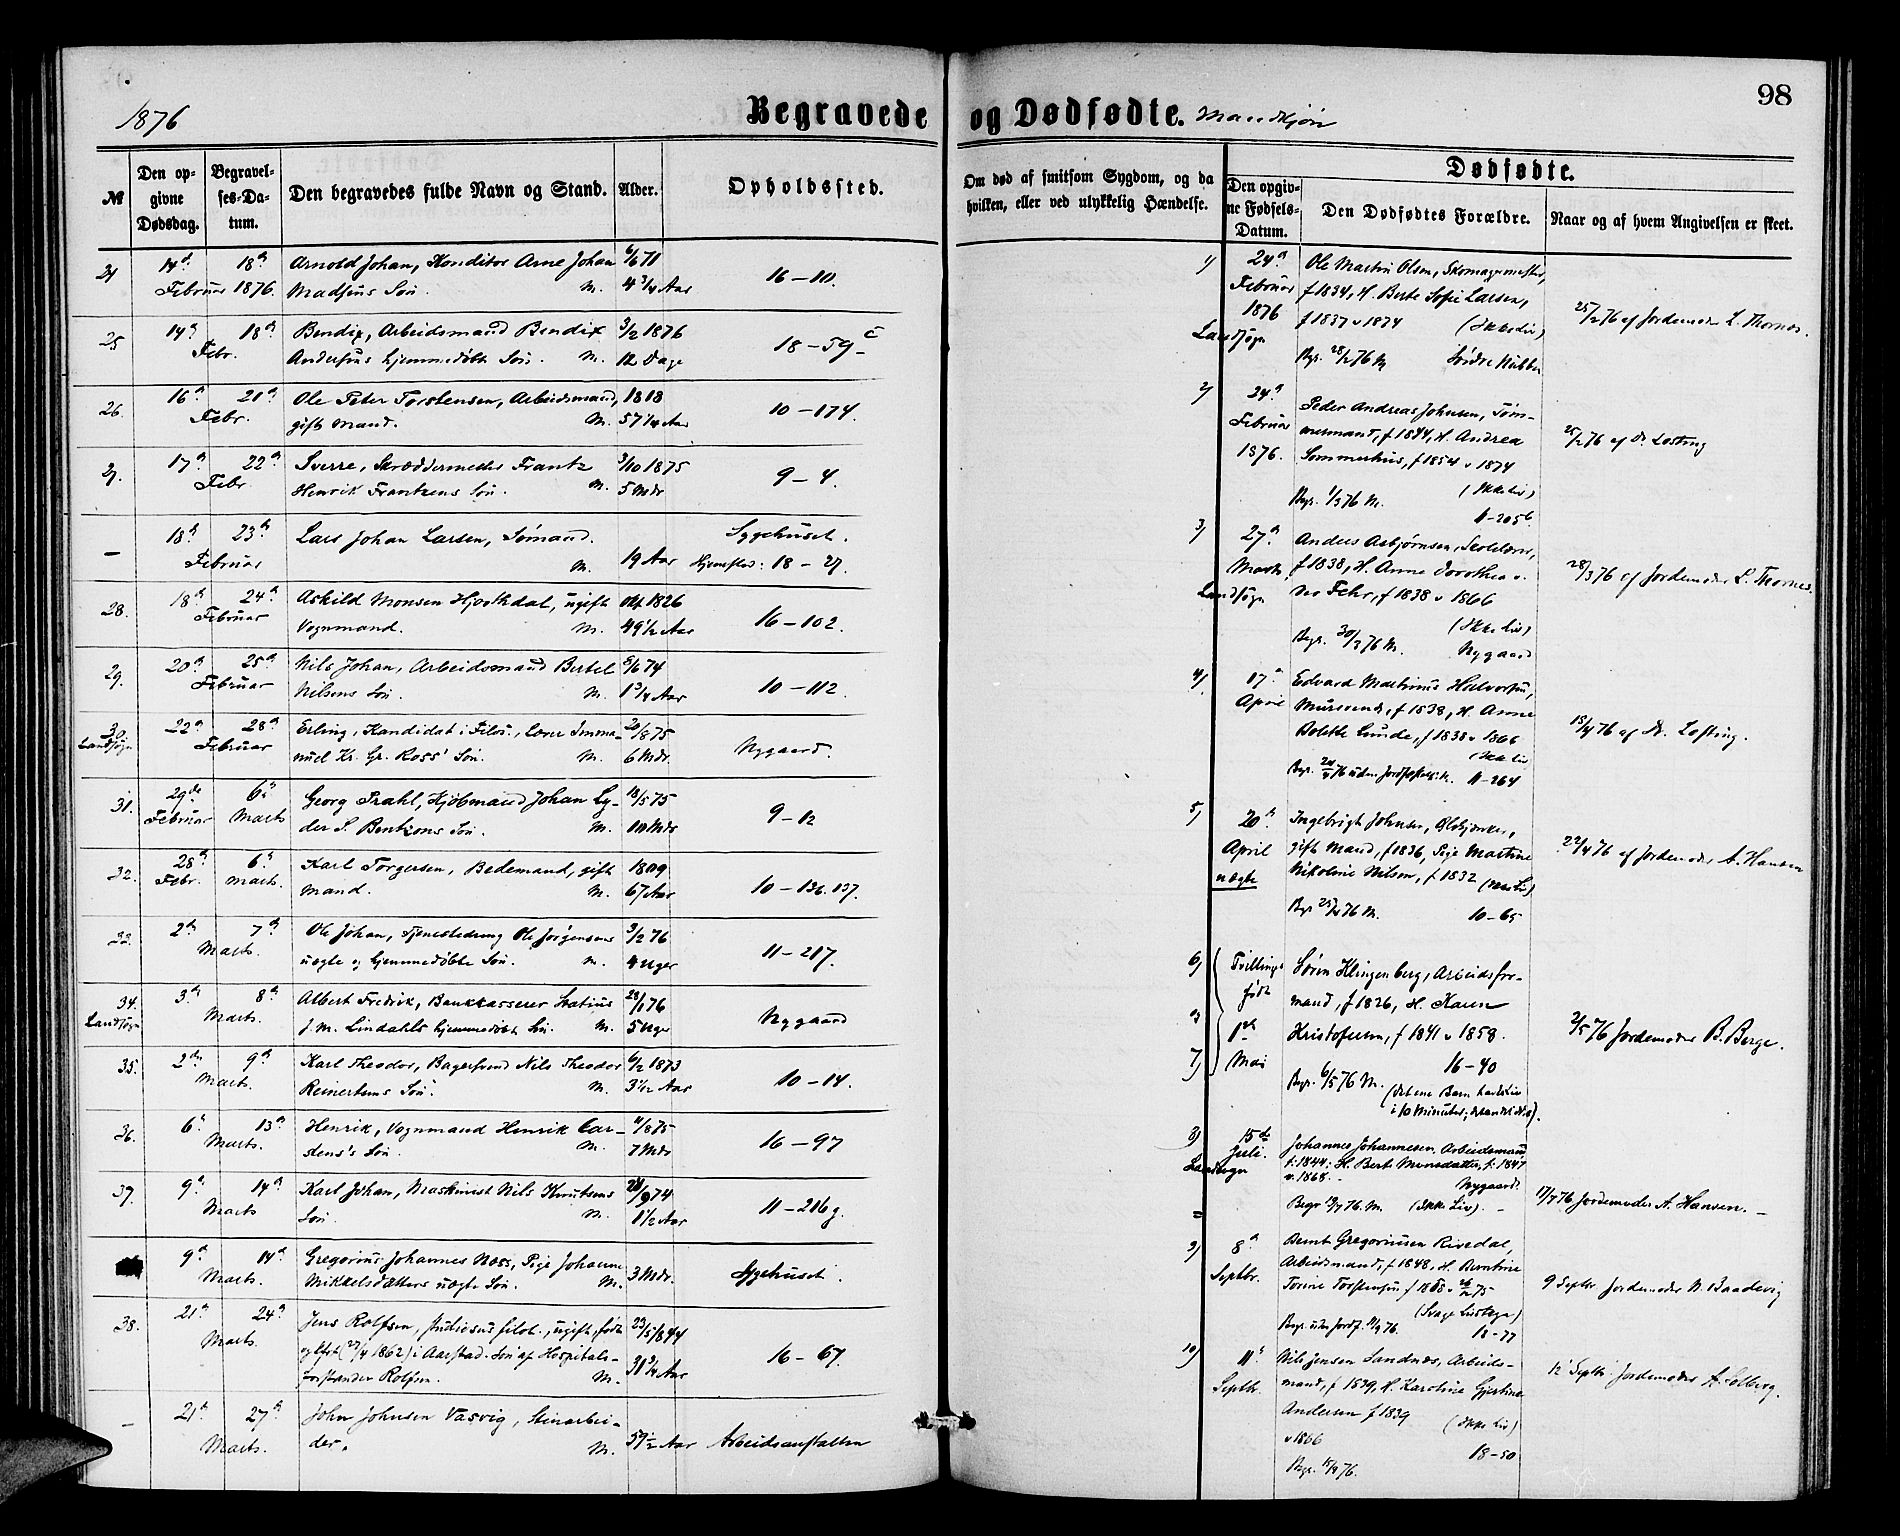 98
1876
Begravede og Dødfødte. Mandkjøn
№
Den opgivne Dødsdag.
Begravelses-Datum.
Den begravedes fulde Navn og Stand.
Alder.
Opholdssted.
Om død af smitsom Sygdom, og da hvilken, eller ved ulykkelig Hændelse.
Dødfødte.
Den opgivne Fødsels-Datum.
Den Dødfødtes Forældre.
Naar og af hvem Angivelsen er skeet.
24 14d Februar 18d 1876. Arnold Johan, Konditor Arne Johan 6/6 71
Madsens Søn. M. 4 3/4 Aar 16-10.
25 14d 18d Febr. Bendix, Arbeidsmand Bendix 3/2 1876
Andersens hjemmedøbte Søn. M. 12 Dage 18-59c
26. 16d 21d Febr. Ole Peter Torstensen, Arbeidsmand, 1818
gift Mand. M. 57 1/4 Aar 10-174.
27. 17d 22d Febr. Sverre, Skræddermester Frantz 3/10 1875
Henrik Frantzens Søn. M. 5 Mdr 9-4.
- 18d 23d Februar Lars Johan Larsen, Sømand. Sygehuset.
M. 19 Aar Hjemsted: 18-27.
28. 18d 24d Februar Askild Monsen Hjorthdal, ugift Okt 1826
Vognmand. M. 49 1/2 Aar 16-102.
29. 20d 25d Februar Nils Johan, Arbeidsmand Bertel 5/6 74
Nilsens Søn. M. 1 3/4 Aar 10-112.
30. Landsogn 22d 28d Februar Erling, Kandidat i Filos., Lærer Imma- 20/8 75
nuel Kr. Gr. Ross' Søn. M. 6 Mdr. Nygaard.
31. 29de Februar 6d Marts Georg Prahl, Kjøbmand Johan Ly- 18/5 75
der S. Bentzons Søn. M. 10 Mdr 9-12
32. 28d Febr. 6d Marts. Karl Torgersen, Bedemand, gift 1809
Mand. M. 67 Aar 10-136.137.
33. 2d 7d Marts. Ole Johan, Tjenestedreng Ole Jørgensens 3/2 76
uægte og hjemmedøbte Søn. M. 4 Uger 11-217.
34. Landsogn 3d 8d Marts. Albert Fredrik, Bankkasserer Statius 28/1 76
J. M. Lindahls hjemmedøbt Søn. M. 5 Uger Nygaard
35. 2den 9d Marts. Karl Theodor, Bagersvend Nils Theodor 6/2 1873
Reinertsens Søn. M. 3 1/12 Aar 10-14.
36. 6d 13d Marts. Henrik, Vognmand Henrik Car- 4/8 75
stens's Søn. M. 7 Mdr 16-97
37. 9d 14d Marts Karl Johan, Maskinist Nils Knutsens 28/9 74
Søn. M. 1 1/2 Aar 11-216g.
9d 14d Marts. Gregorius Johannes Næss, Pige Johanne
Mikkelsdatters uægte Søn. M. 3 Mdr. Sygehuset.
38. 21d 24d Marts. Jens Rolfsen, studiosus filol., ugift, født 23/5 1844
og døbt (27/4 1862) i Aarstad. Søn af Hospitals-
forstander Rolfsen. M. 31 3/4 Aar 16-67.
- 21d 27d Marts. John Johnsen Vasvig, Stenarbei-
der. M. 57 1/2 Aar Arbeidsanstalten
1) 24d Februar 1876 Landsogn Ole Martin Olsen, Skomagermester,
f 1834, H. Berte Sofie Larsen,
f 1837 v 1874 (Ikke Liv)
Bgr. 28/2 76 M Søndre Nubben
25/2 76 af Jordemoder L. Thornæs.
2) 24d Februar 1876. Peder Andreas Johnsen, Tøm-
mermand, f 1844, H. Andrea
Sommerhus, f 1854 v 1874
Bgr. 1/3 76 M. (Ikke Liv)
11-205b.
25/2 76 af Dr. Lofting
3) 27d Marts Landsogn Anders Asbjørnsen, Skolelærer,
f 1838, H. Anne Dorothea
Fehr, f 1838 v 1866
(Ikke Liv)
Bgr. 30/3 76 M. Nygaard
28/3 76 af Jordemoder L. Thornes.
4) 17d April Edvard Martinus Halvorsen,
Mursvend, f 1838, H. Anne
Bolette Lunde, f 1838 v 1866
(Ikke Liv
Bgr. 24/4 76 uden Jordfæstelse. M. 11-264
18/4 76 af Dr. Lofting.
5) 20d April uægte Ingebrigt Johnsen, Ølskjenker,
gift Mand, f 1836, Pige Martine
Nikoline Nilsen, f 1832 (Ikke Liv)
Bgr 25/4 76 M. 10-65
22/4 76 af Jordemoder A. Hansen
6) og 7) Tvillinge født 1ste Mai Søren Klingenberg, Arbeidsfor-
mand, f 1826, H. Karen
Kristofersen, f 1841 v 1858.
16-40
Bgr. 6/5 76 M. (det ene Barn havde Liv
i 10 Minuter; det andet ikke).
2/5 76 Jordemoder B. Berge.
8) 15de Juli. Landsogn Johannes Johannesen, Arbeidsmand
f: 1844: H. Berte Monsdatter, f: 1847
v. 1868. Nygaard.
Begr 19/7 76. M. (Ikke Liv).
17/7 76 Jordemoder A. Hansen.
9) 8d Septbr. Bernt Gregoriusen Rivedal,
Arbeidsmand, f 1848, H. Berntine
(Svage Livstegn)
18-77
9 Septbr Jordemoder N. Baadevig
10) 11d Septbr. Nils Jensen Sandnæs, Arbeids-
mand, f 1839, H. Karoline Gjertine
Andersen f 1839 (Ikke Liv)
v 1866
18-50
Bgr. 15/9 76.
12 Septbr Jordemoder A. Solberg.